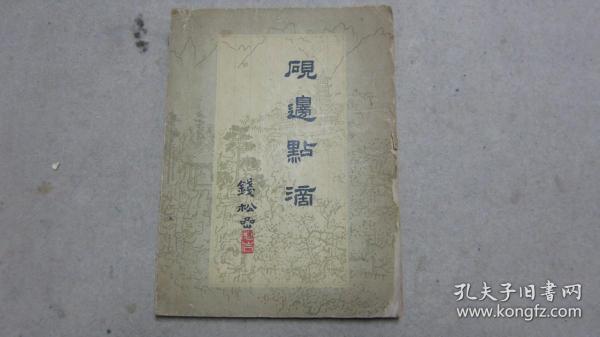 硯邊點滴
錢松嵒
孔夫子旧书网
www.kongfz.com